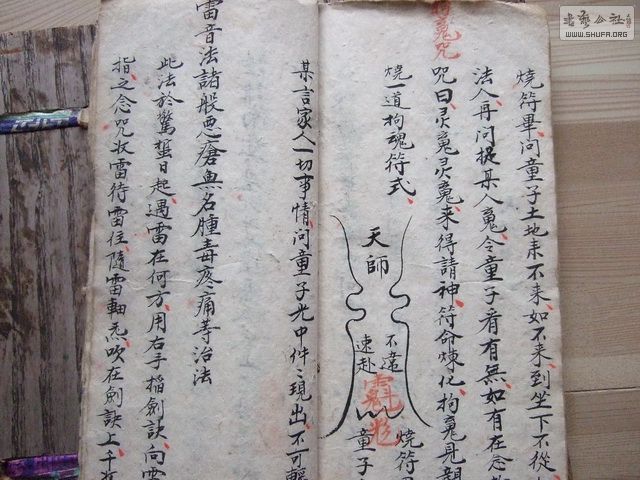 燒符畢問童子土地來不來如不來到坐下不從
法入再問捉某人䰟令童子看有無如有在念
咒曰灵䰟灵䰟来得請神符命煉化拘䰟見
䰟咒
燒一道拘魂符式
天師
不違
速赴
燒符
童子
某言家人一切事情問童子光中件〻現出不可輕
雷音法諸般惡瘡無名腫毒疼痛等治法
此法於驚蟄日起遇雷在何方用右手搯劍訣向雷
指之念咒収雷待雷住隨雷軸炁吹在劍訣上千
書法公社
WWW.SHUFA.ORG